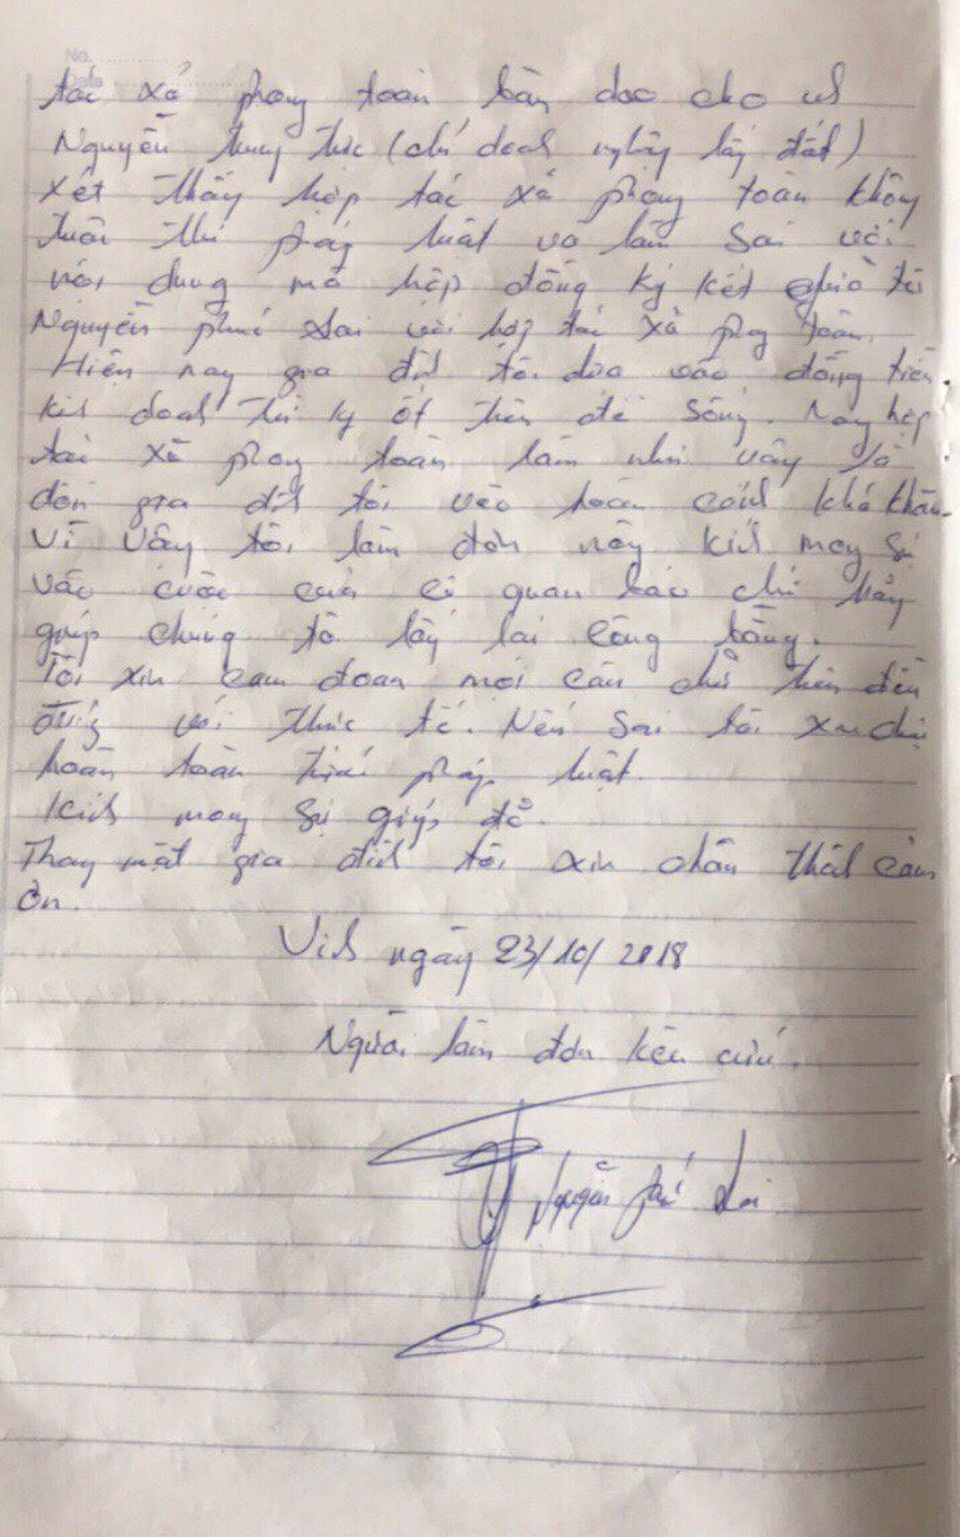 No.
Date
tác xã phong toàn bàn dao cho
Nguyễn trung thực (chỉ doanh nghiệp lấy đất)
Xét thấy hợp tác xã phong toàn không
tuân thủ pháp luật và làm sai với
nội dung mà hợp đồng ký kết giữa tôi
Nguyễn phú Lai với hợp tác xã phong toàn.
Hiện nay gia đình tôi dựa vào đồng tiền
kinh doanh thì ly ốt trên để sống. Nay hợp
tác xã phong toàn làm như vậy là
dồn gia đình tôi vào hoàn cảnh khó khăn.
Vì vậy tôi làm đơn này kính mong sự
vào cuộc của cơ quan báo chí hãy
giúp chúng tôi lấy lại công bằng.
Tôi xin cam đoan mọi câu chữ trên đều
đúng với thực tế. Nếu sai tôi xin chịu
hoàn toàn trước pháp luật.
Kính mong sự giúp đỡ.
Thay mặt gia đình tôi xin chân thành cảm
ơn.
Vinh ngày 23/10/2018
Người làm đơn kêu cứu.
Nguyễn phú Lai